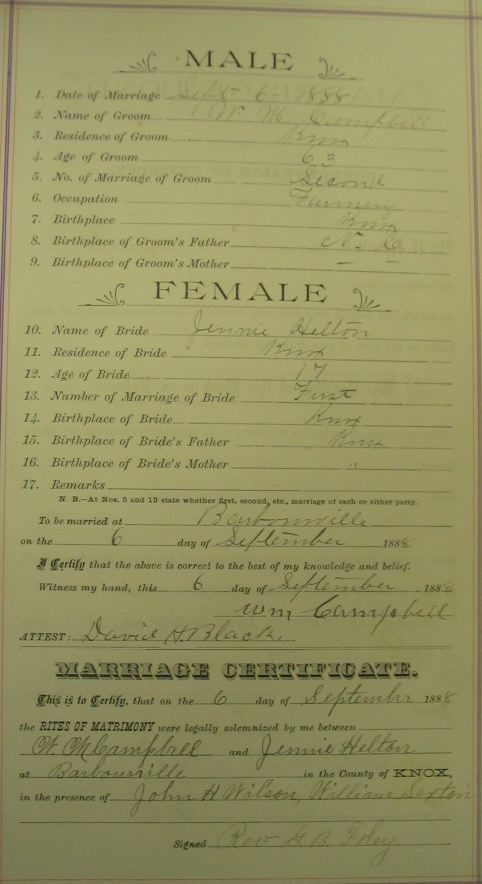 MALE
1. Date of Marriage Sept 6 1888
2. Name of Groom W. M. Campbell
3. Residence of Groom Knox
4. Age of Groom 63
5. No. of Marriage of Groom Second
6. Occupation Farming
7. Birthplace Knox
8. Birthplace of Groom's Father N. C.
9. Birthplace of Groom's Mother — —
FEMALE
10. Name of Bride Jennie Helton
11. Residence of Bride Knox
12. Age of Bride 17
13. Number of Marriage of Bride First
14. Birthplace of Bride Knox
15. Birthplace of Bride's Father Knox
16. Birthplace of Bride's Mother "
17. Remarks
N. B.—At Nos. 5 and 13 state whether first, second, etc., marriage of each or either party.
To be married at Barbourville
on the 6 day of September 1888
I Certify that the above is correct to the best of my knowledge and belief.
Witness my hand, this 6 day of September 1888
Wm Campbell
ATTEST: David H. Black,
MARRIAGE CERTIFICATE.
This is to Certify, that on the 6 day of September 1888
the RITES OF MATRIMONY were legally solemnized by me between
W. M Campbell and Jennie Helton
at Barbourville in the County of KNOX,
in the presence of John H Wilson, William Sexton
Signed Rev G. B. Foley